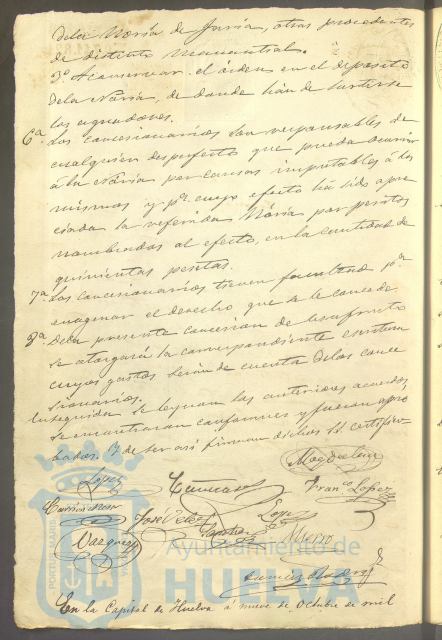 dela Noria de Juria, otras procedentes
de distinto manantial.
3º A conservar el órden en el deposito
dela Noria, de donde han de surtirse
los aguadores.
6ª Los concesionarios son responsables de
cualquier desperfecto que pueda ocurrir
á la Noria por causas imputables á los
mismos y pª cuyo efecto ha sido apre
ciada la referida Noria por peritos
nombrados al efecto, en la cantidad de
quinientas pesetas.
7ª Los concesionarios tienen facultad pª
enagenar el derecho que se le concede.
8ª Dela presente concesion de usufruto
se otorgará la correspondiente escritura
cuyos gastos serán de cuenta delos conce
sionarios.
Enseguida se leyeron las anteriores acuerdos,
se encontraron conformes y fueron apro
bados. Y de ser asi firman dichos SS. certifico=
Lopez
Franco Lopez
José Velez
Lopez
Vazquez
Ayuntamiento de
HUELVA
PORTUS MARIS
En la Capital de Huelva á nueve de Octubre de mil